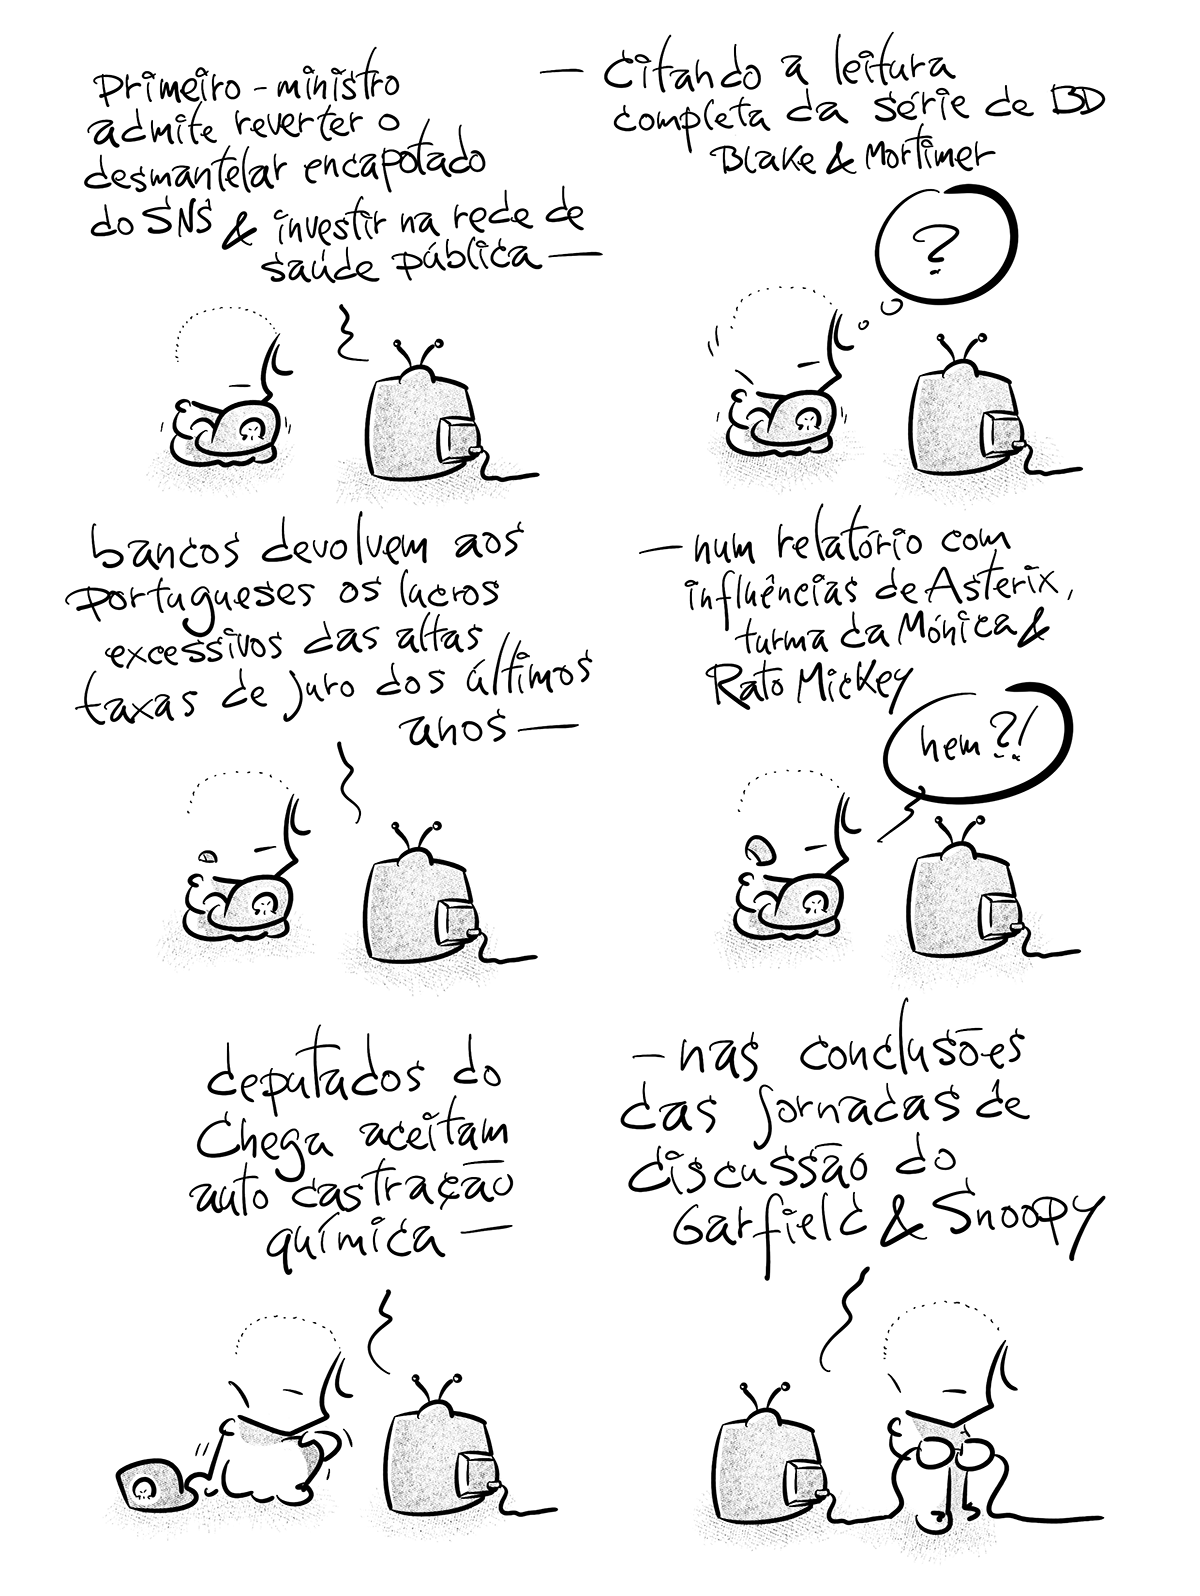 Primeiro-ministro
admite reverter o
desmantelar encapotado
do SNS & investir na rede de
saúde pública —
— citando a leitura
completa da série de BD
Blake & Mortimer
?
bancos devolvem aos
portugueses os lucros
excessivos das altas
taxas de juro dos últimos
anos —
— num relatório com
influências de Asterix,
turma da Mónica &
Rato Mickey
hem ?!
deputados do
Chega aceitam
auto castração
química —
— nas conclusões
das jornadas de
discussão do
Garfield & Snoopy